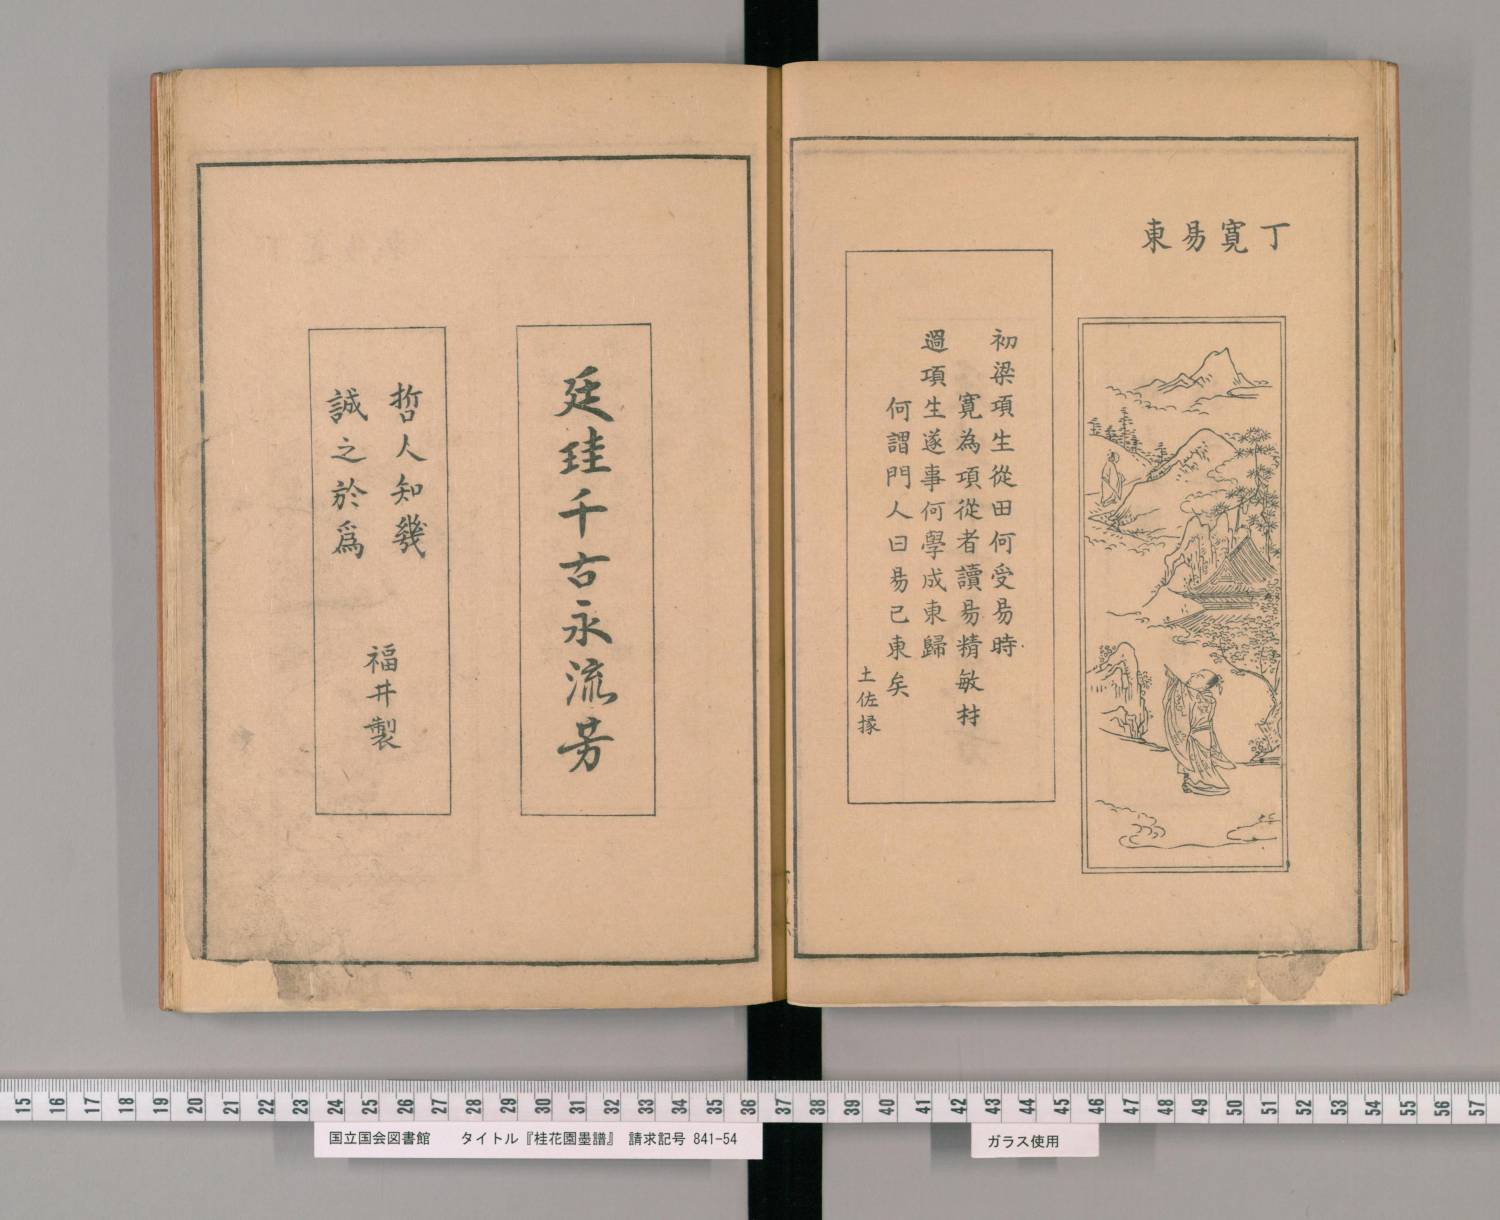 丁寬易東
初梁項生從田何受易時
寬為項從者讀易精敏材
過項生遂事何學成東歸
何謂門人曰易已東矣
土佐掾
廷珪千古永流芳
哲人知幾
誠之於爲
福井製
15 16 17 18 19 20 21 22 23 24 25 26 27 28 29 30 31 32 33 34 35 36 37 38 39 40 41 42 43 44 45 46 47 48 49 50 51 52 53 54 55 56 57
国立国会図書館 タイトル『桂花園墨譜』 請求記号 841-54
ガラス使用